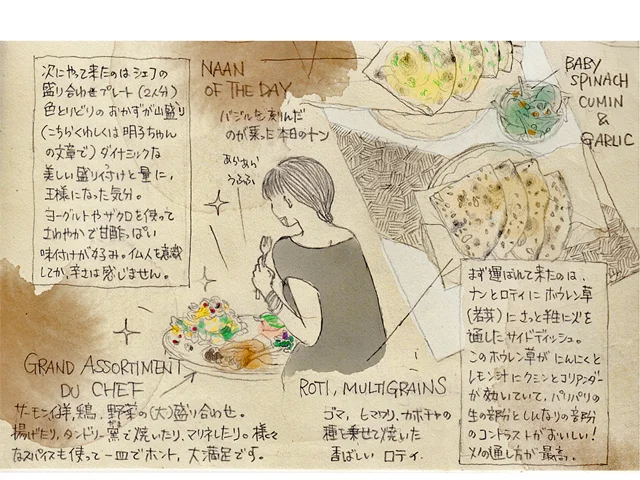 次にやって来たのはシェフの
盛り合わせプレート(2人分)
色とりどりのおかずが山盛り
(こちらくわしくは明るちゃん
の文章で)ダイナミックな
美しい盛り付けと量に、
王様になった気分。
ヨーグルトやザクロを使って
さわやかで甘酸っぱい
味付けがからみ。仏人を意識
してか、辛さは感じません。
NAAN
OF THE DAY
バジルを刻んだ
のが乗った本日のナン
あらあら
うふふ
BABY
SPINACH
CUMIN
&
GARLIC
まず運ばれて来たのは、
ナンとロティにホウレン草
(若芽)にさっと半生に火を
通したサイドディッシュ。
このホウレン草がにんにくと
レモン汁にクミンとコリアンダー
が効いていて、パリパリの
生の部分としんなりの部分
のコントラストがおいしい!
火の通し方が最高。
GRAND ASSORTIMENT
DU CHEF
サーモン、羊、鶏、野菜の(大)盛り合わせ。
揚げたり、タンドリー窯で焼いたり、マリネしたり。様々
なスパイスも使って一皿でホント、大満足です。
ROTI, MULTIGRAINS
ゴマ、ヒマワリ、カボチャの
種を乗せて焼いた
香ばしい ロティ.